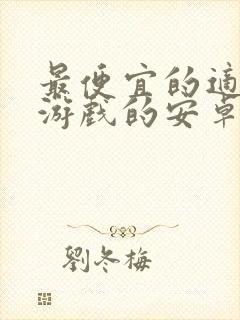 最便宜的適
游戲的安卓
劉冬梅